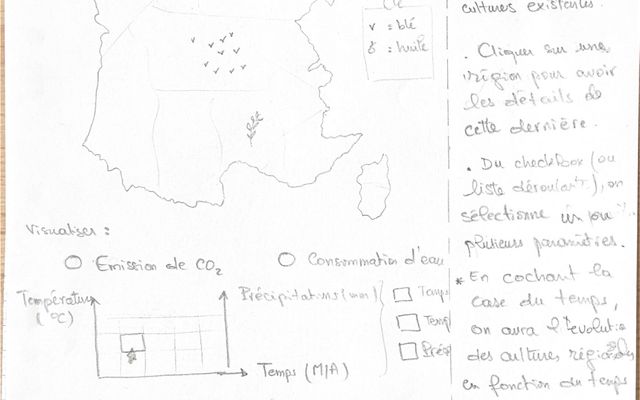 Clé
v = blé
= huile
Visualiser :
Emission de CO2
Consommation d'eau
Température
(°C)
Précipitations (mm)
Temps (M/A)
Temps
Temp
Préc
cultures existantes.
. Cliquer sur une
région pour avoir
les détails de
cette dernière.
. Du checkbox (ou
liste déroulante), on
sélectionne un ou
plusieurs paramètres.
* En cochant la
case du temps,
on aura l'évolution
des cultures régionales
en fonction du temps